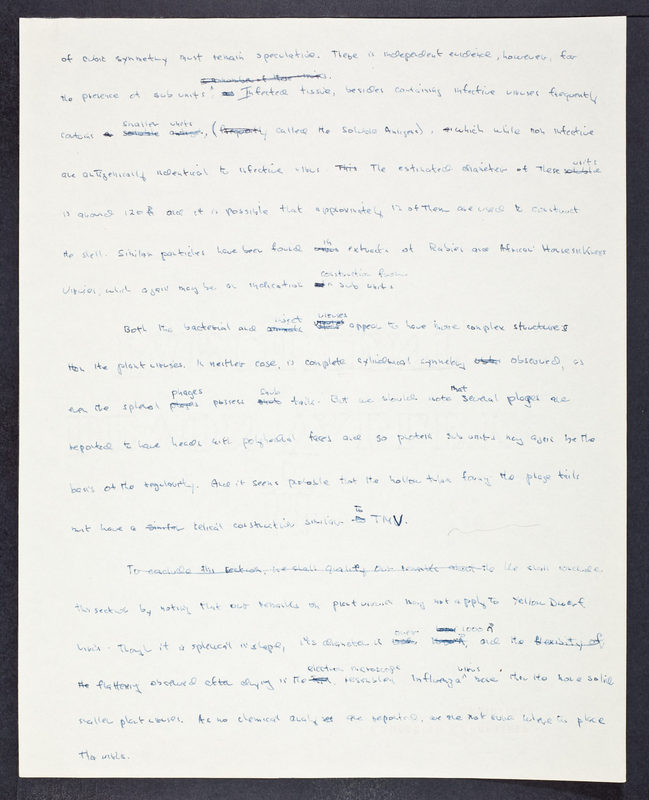 of cubic symmetry must remain speculative. There is independent evidence, however, for
the presence of sub units. Infected tissue, besides containing infective viruses frequently
contains smaller units, (frequently called the Soluble Antigens), which while non infective
are antigenically indentical to infective virus This The estimated diameter of these units
is around 120Å and it is possible that approximately 12 of them are used to construct
the shell. Similar particles have been found in extracts of Rabies and African Horsesickness
Viruses, which again may be an indication construction from sub units
Both the bacterial and insect viruses appear to have more complex structures
than the plant viruses. In neither case, is complete cylindrical symmetry observed, as
even the spheral phages possess stub tails. But we should note that several phages are
reported to have heads with polyhedral faces and so protein sub units may again be the
basis of the regularity. And it seems probable that the hollow tubes forming the phage tails
must have a similar helical construction similar to TMV.
To conclude this section, we shall qualify our remarks We shall conclude
this section by noting that our remarks on plant viruses may not apply to Yellow Dwarf
Virus. Though it is spherical in shape, its diameter is over 1000Å, and the flexibility of
the flattening observed after drying in the electron microscope resembles Influenza virus more than the more solid
smaller plant viruses. As no chemical analyses are reported, we are not sure where to place
this virus.